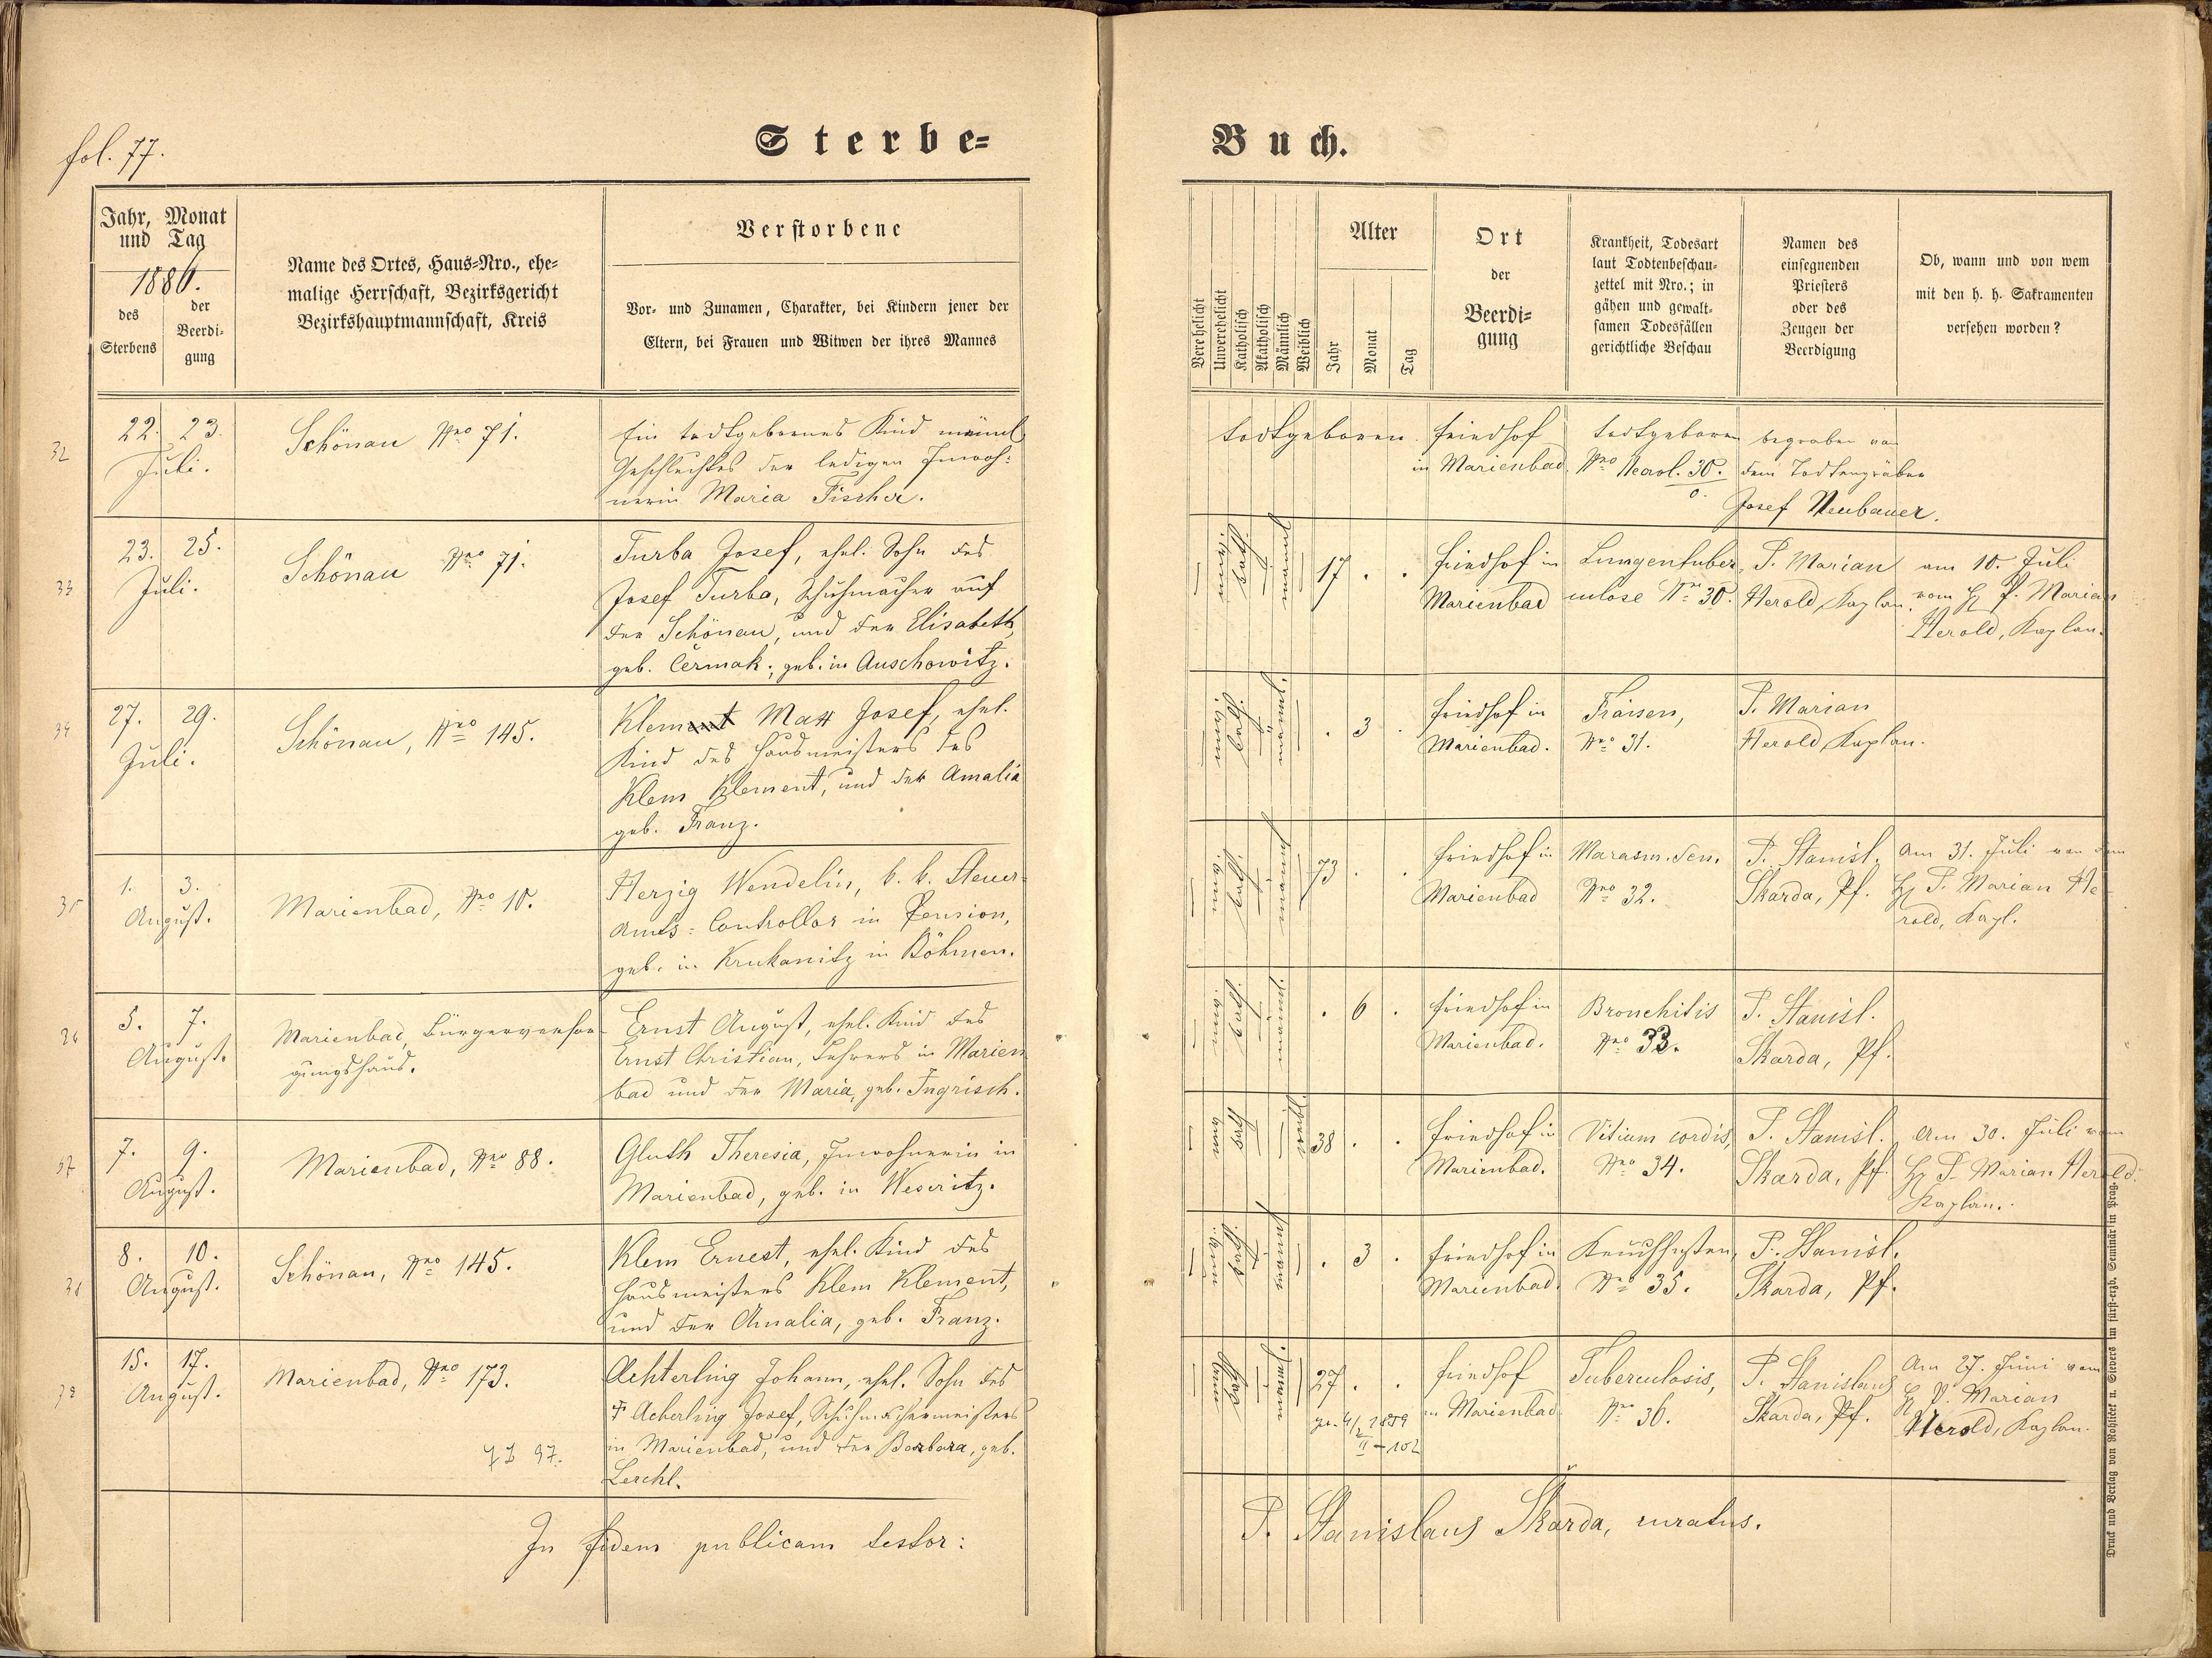 fol. 77.
Sterbe=
Buch.
Jahr, Monat
und Tag
1886.
des
Sterbens
der
Beerdi=
gung
Name des Ortes, Haus=Nro., ehe=
malige Herrschaft, Bezirksgericht
Bezirkshauptmannschaft, Kreis
Verstorbene
Vor= und Zunamen, Charakter, bei Kindern jener der
Eltern, bei Frauen und Witwen der ihres Mannes
Verehelicht
Unverehelicht
Katholisch
Akatholisch
Männlich
Weiblich
Alter
Jahr
Monat
Tag
Ort
der
Beerdi=
gung
Krankheit, Todesart
laut Todtenbeschau=
zettel mit Nro.; in
gähen und gewalt=
samen Todesfällen
gerichtliche Beschau
Namen des
einsegnenden
Priesters
oder des
Zeugen der
Beerdigung
Ob, wann und von wem
mit den h. h. Sakramenten
versehen worden?
32
22. 23.
Juli.
Schönau Nro 71.
Ein todtgebornes Kind männl.
Geschlechtes der ledigen Inwoh=
nerin Maria Fischer.
todtgeboren.
Friedhof
in Marienbad
todtgeboren
Nro 30.
begraben von
dem Todtengräber
Josef Neubauer.
33
23. 25.
Juli.
Schönau Nro 71.
Turba Josef, ehel. Sohn des
Josef Turba, Schuhmacher auf
der Schönau, und der Elisabeth,
geb. Čermak; geb. in Auschowitz.
17 . .
Friedhof in
Marienbad
Lungentuber
culose Nro 30.
P. Marian
Herold, Kaplan.
am 10. Juli
vom H P. Marian
Herold, Kaplan.
34
27. 29.
Juli.
Schönau, Nro 145.
Klement Max Josef, ehel.
Kind des Hausmeisters des
Klem Klement, und der Amalia
geb. Franz.
. 3 .
Friedhof in
Marienbad.
Fraisen,
Nro 31.
P. Marian
Herold, Kaplan.
35
1. 3.
August.
Marienbad, Nro 10.
Herzig Wendelin, k. k. Steuer=
amts=Controllor in Pension,
geb. in Krukanitz in Böhmen.
73 . .
Friedhof in
Marienbad
Marasm. Sen.
Nro 32.
P. Stanisl.
Skarda, Pf.
Am 31. Juli von dem
H P. Marian He
rold, Kapl.
36
5. 7.
August.
Marienbad, Bürgerversor
gungshaus.
Ernst August, ehel. Kind des
Ernst Christian, Lehrers in Marien
bad und der Maria, geb. Ingrisch.
. 6 .
Friedhof in
Marienbad.
Bronchitis
Nro 33.
P. Stanisl.
Skarda, Pf.
37
7. 9.
August.
Marienbad, Nro 88.
Gluth Theresia, Inwohnerin in
Marienbad, geb. in Weseritz.
38 . .
Friedhof in
Marienbad.
Vitium cordis,
Nro 34.
P. Stanisl.
Skarda, Pf.
Am 30. Juli vom
H P. Marian Herold.
Kaplan.
38
8. 10.
August.
Schönau, Nro 145.
Klem Ernest, ehel. Kind des
Hausmeisters Klem Klement,
und der Amalia, geb. Franz.
. 3 .
Friedhof in
Marienbad.
Keuchhusten,
Nro 35.
P. Stanisl.
Skarda, Pf.
39
15. 17.
August.
Marienbad, Nro 173.
97.
Achterling Johann, ehel. Sohn des
† Acherling Josef, Schuhmachermeisters
in Marienbad, und der Barbara, geb.
Lerchl.
27 . .
4/2 1859
II - 102
Friedhof
in Marienbad
Tuberculosis,
Nro 36.
P. Stanislaus
Skarda, Pf.
Am 27. Juni vom
H P. Marian
Herold, Kaplan.
In fidem publicam testor:
P. Stanislaus Skarda, curatus.
Druck und Verlag von Rohlíček u. Sievers im fürst-erzb. Seminär in Prag.